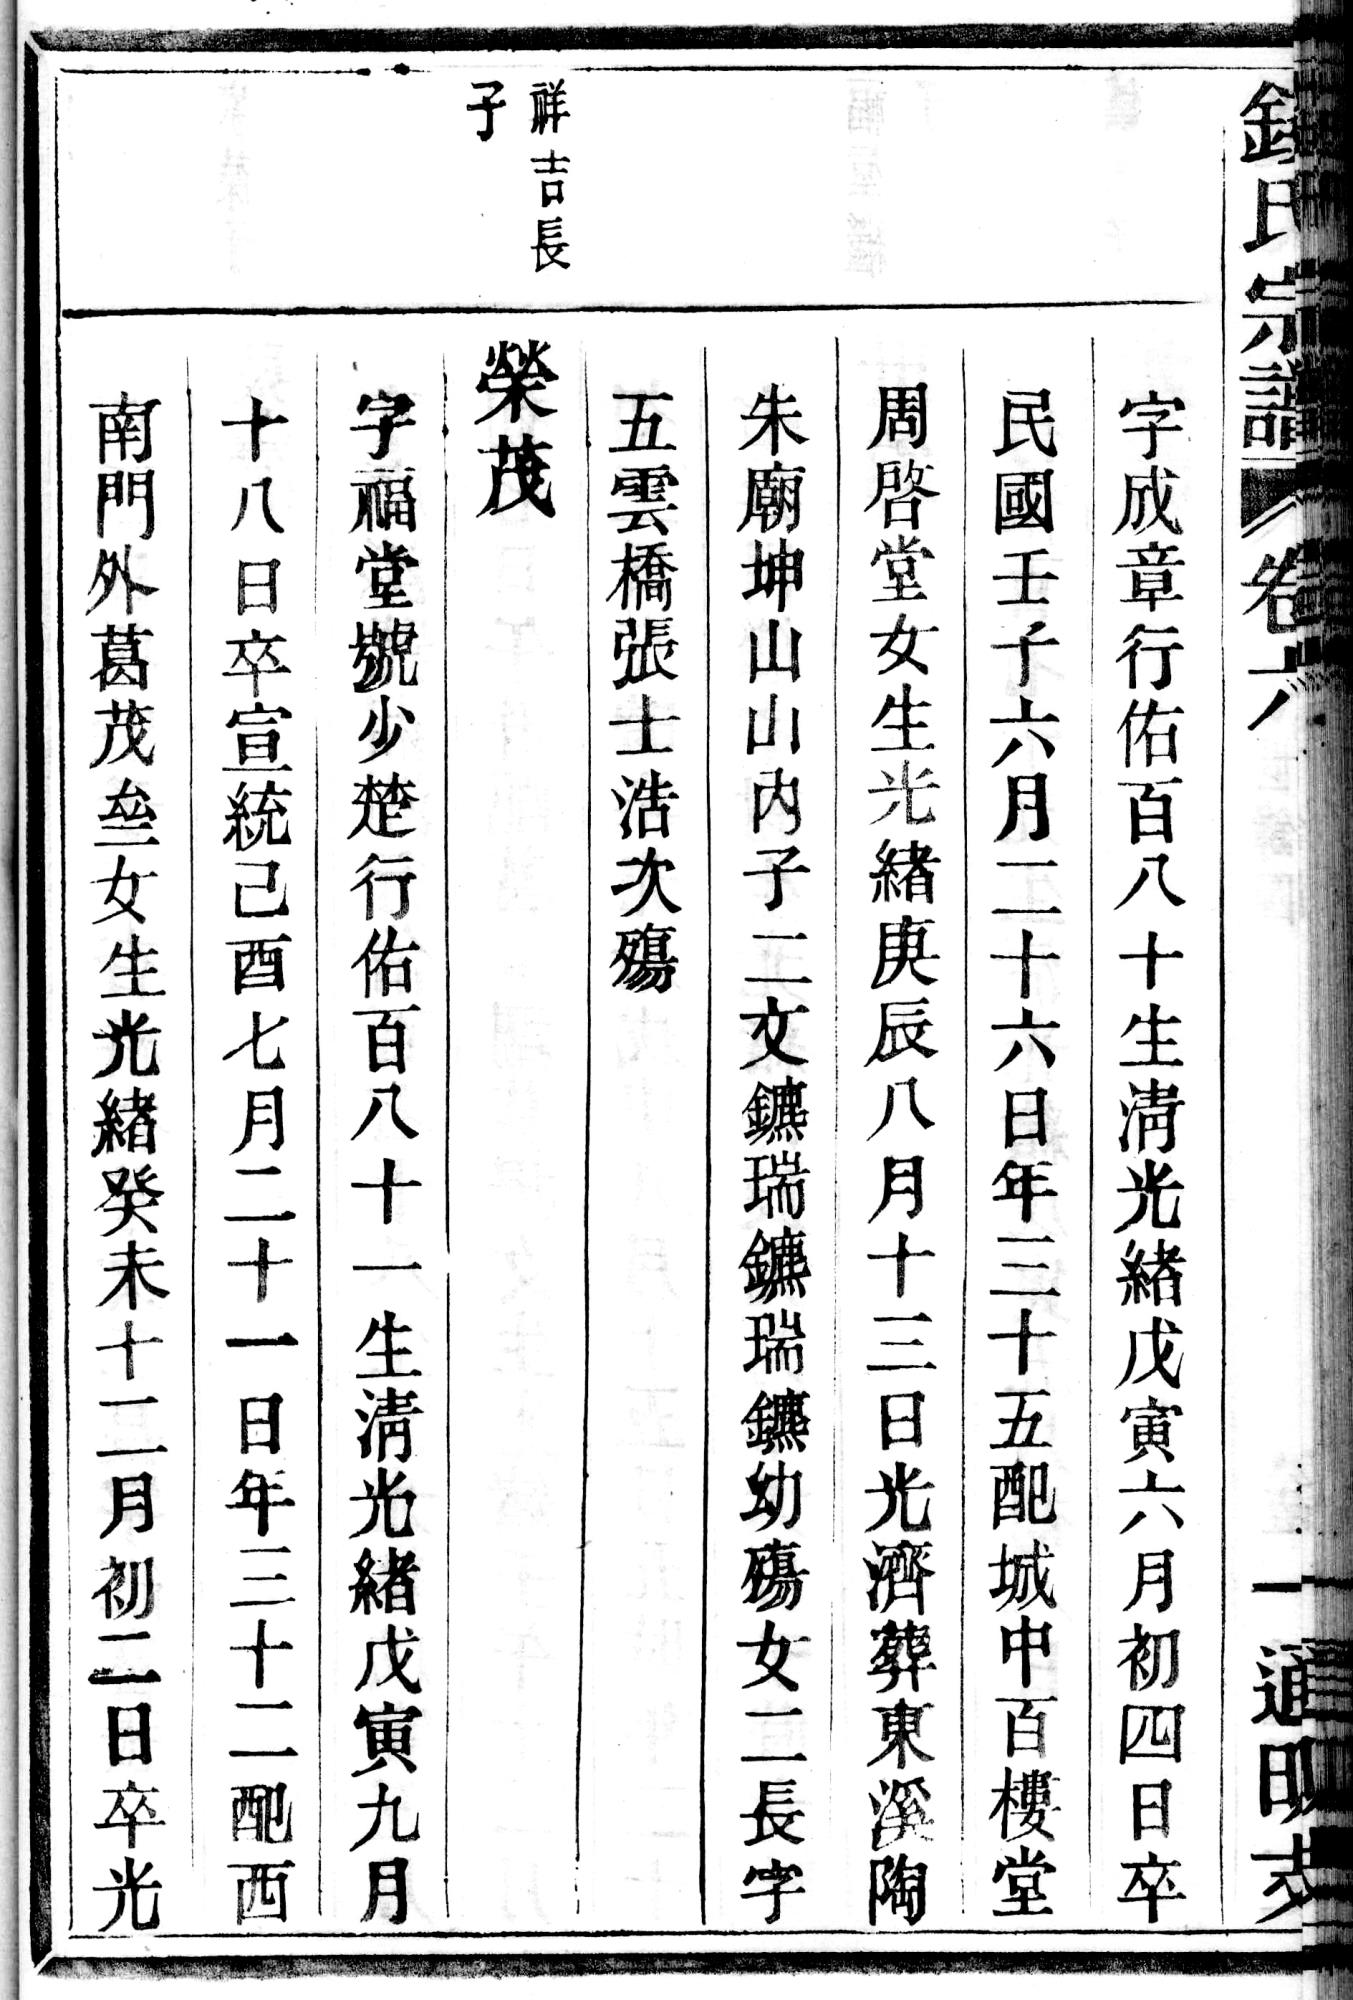 氏宗譜 卷六 一 通明支
字成章行佑百八十生淸光緖戊寅六月初四日卒
民國壬子六月二十六日年三十五配城中百樓堂
周啓堂女生光緖庚辰八月十三日光濟葬東溪陶
朱廟坤山山內子二文鑣瑞鑣瑞鑣幼殤女二長字
五雲橋張士浩次殤
祥吉長
子
榮茂
字福堂號少楚行佑百八十一生淸光緖戊寅九月
十八日卒宣統己酉七月二十一日年三十二配西
南門外葛茂垒女生光緖癸未十二月初二日卒光